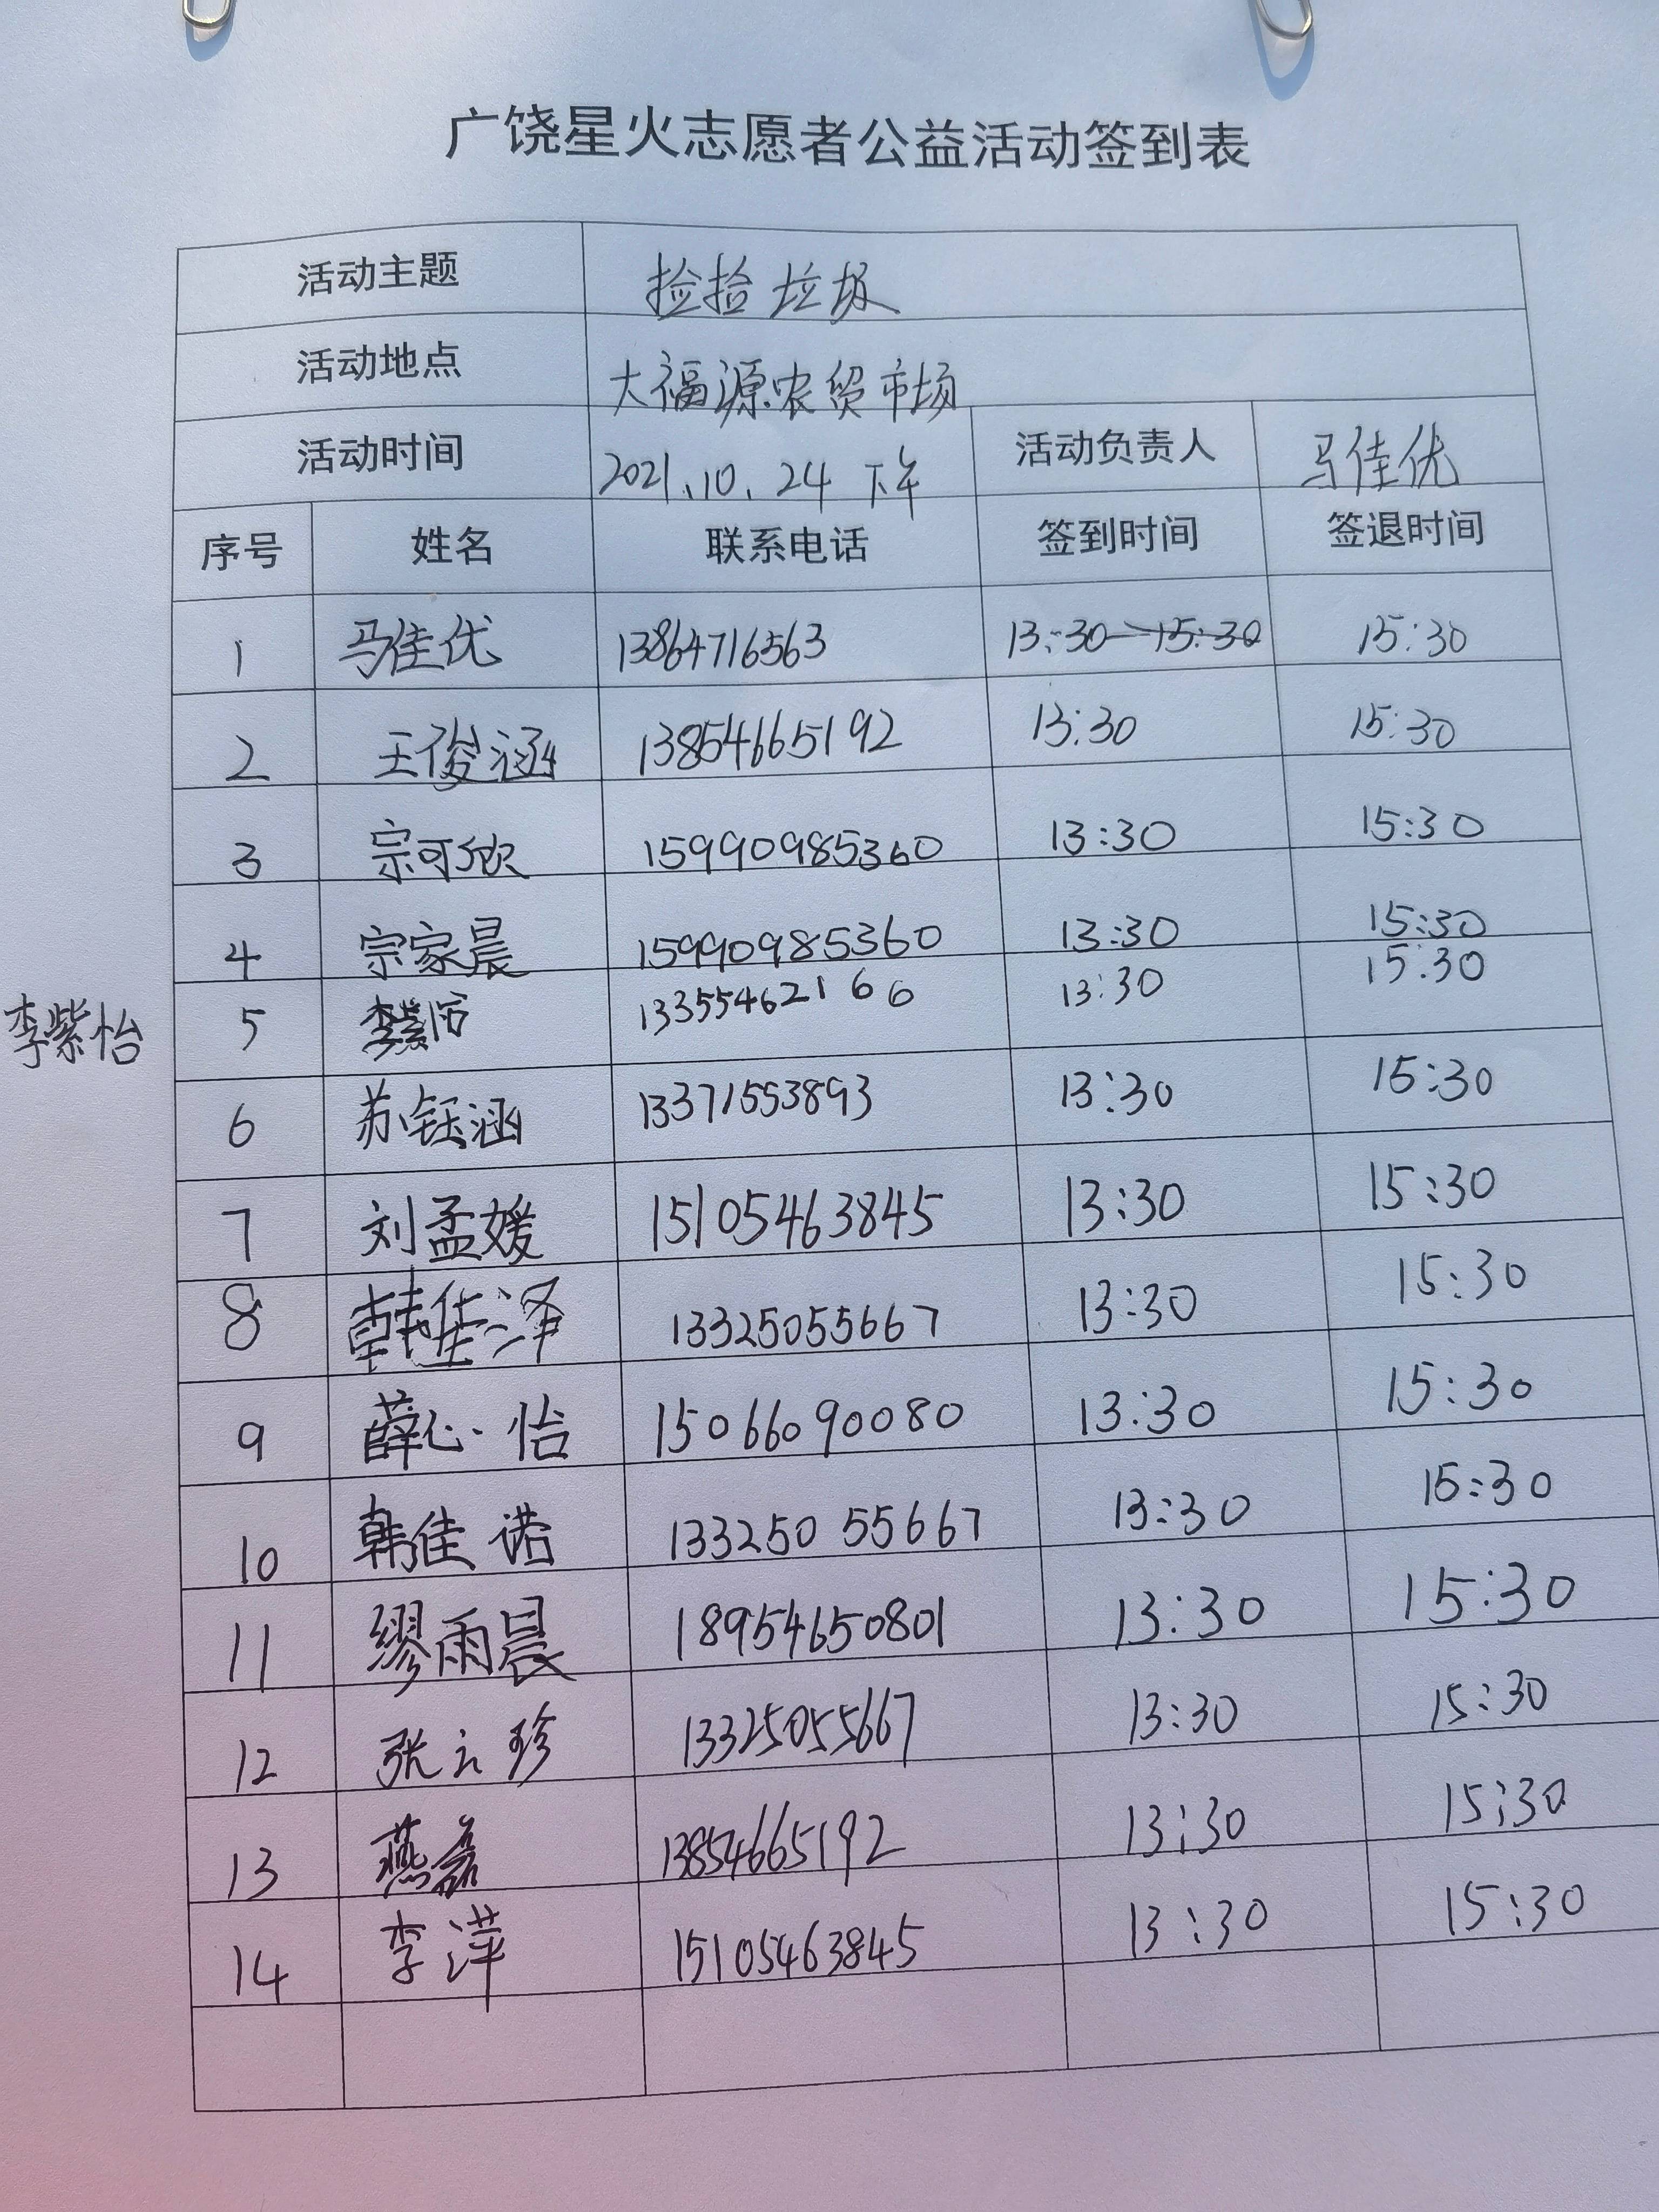 广饶星火志愿者公益活动签到表
活动主题 捡拾垃圾
活动地点 大福源农贸市场
活动时间 2021.10.24 下午 活动负责人 马佳优
序号 姓名 联系电话 签到时间 签退时间
1 马佳优 13864716563 13:30—15:30 15:30
2 王俊涵 13854665192 13:30 15:30
3 宗可欣 15990985360 13:30 15:30
4 宗家晨 15990985360 13:30 15:30
李紫怡 5 李紫怡 13355462166 13:30 15:30
6 苏钰涵 13371553893 13:30 15:30
7 刘孟媛 15105463845 13:30 15:30
8 韩佳泽 13325055667 13:30 15:30
9 薛心怡 15066090080 13:30 15:30
10 韩佳诺 13325055667 13:30 15:30
11 缪雨晨 18954650801 13:30 15:30
12 张云珍 13325055667 13:30 15:30
13 燕磊 13854665192 13:30 15:30
14 李萍 15105463845 13:30 15:30